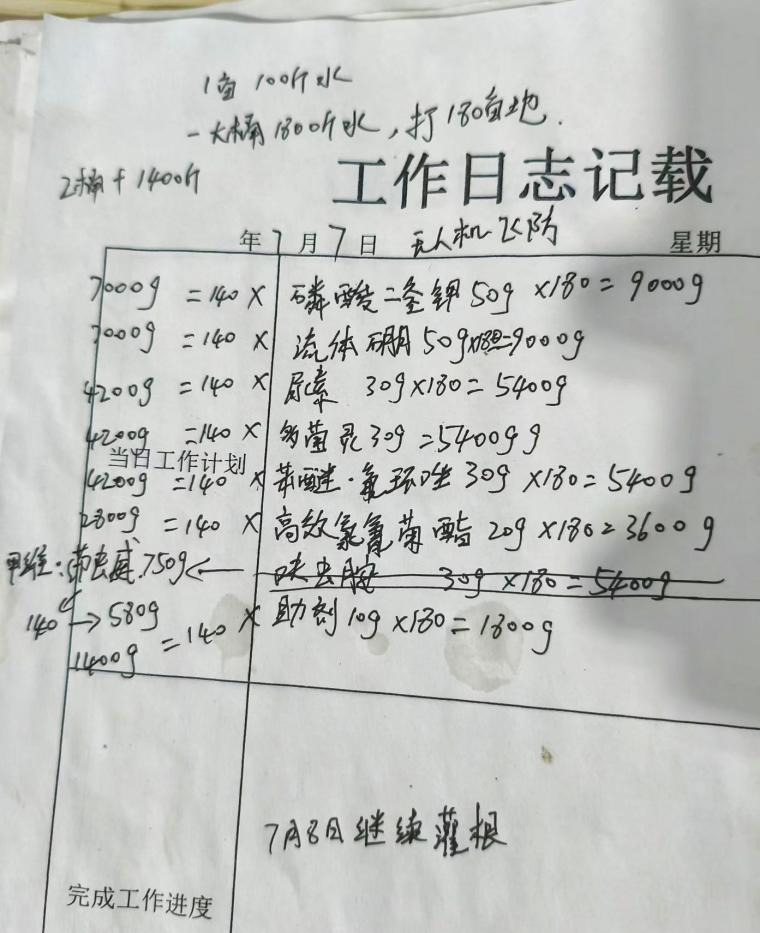 1亩 100斤水
一大桶1800斤水，打180亩地.
2桶+1400斤
工作日志记载
年 7 月 7 日 无人机飞防 星期
7000g =140 × 磷酸二氢钾 50g ×180= 9000g
7000g =140 × 流体硼 50g×180=9000g
4200g =140 × 尿素 30g×180=5400g
4200g =140 × 多菌灵30g =5400g g
当日工作计划
4200g =140 × 苯醚·氟环唑 30g ×180=5400g
2800g =140 × 高效氯氰菊酯 20g ×180=3600g
甲维·茚虫威.750g ← 呋虫胺 30g ×180=5400g
140 → 580g
1400g =140 × 助剂 10g ×180=1800g
7月8日继续灌根
完成工作进度